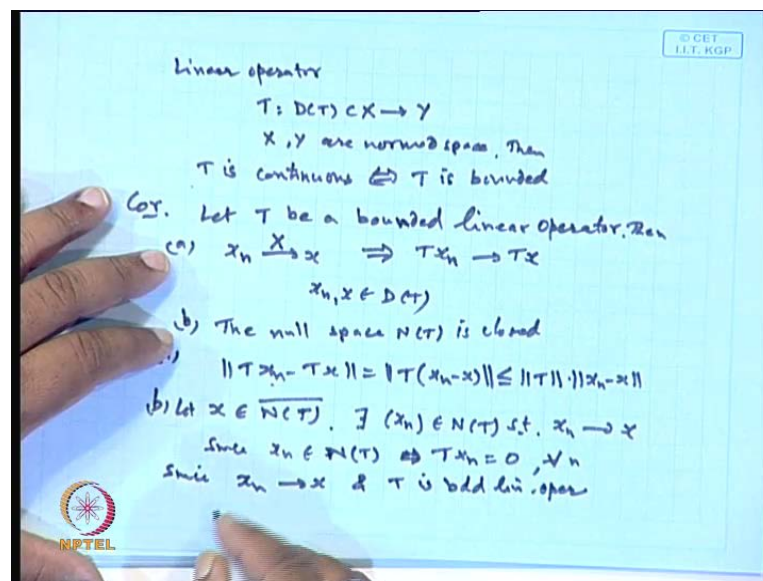 © CET
I.I.T. KGP
Linear operator
T: D(T) ⊂ X → Y
X, Y are normed space, Then
T is continuous ⇔ T is bounded
Cor. Let T be a bounded linear operator. Then
(a) xₙ →ˣ x ⇒ Txₙ → Tx
xₙ, x ∈ D(T)
(b) The null space N(T) is closed
||Txₙ - Tx|| = ||T(xₙ-x)|| ≤ ||T||·||xₙ-x||
(b) Let x ∈ \overline{N(T)}. ∃ (xₙ) ∈ N(T) s.t. xₙ → x
Since xₙ ∈ N(T) ⇒ Txₙ = 0, ∀ n
Since xₙ → x & T is bdd lin. oper
NPTEL